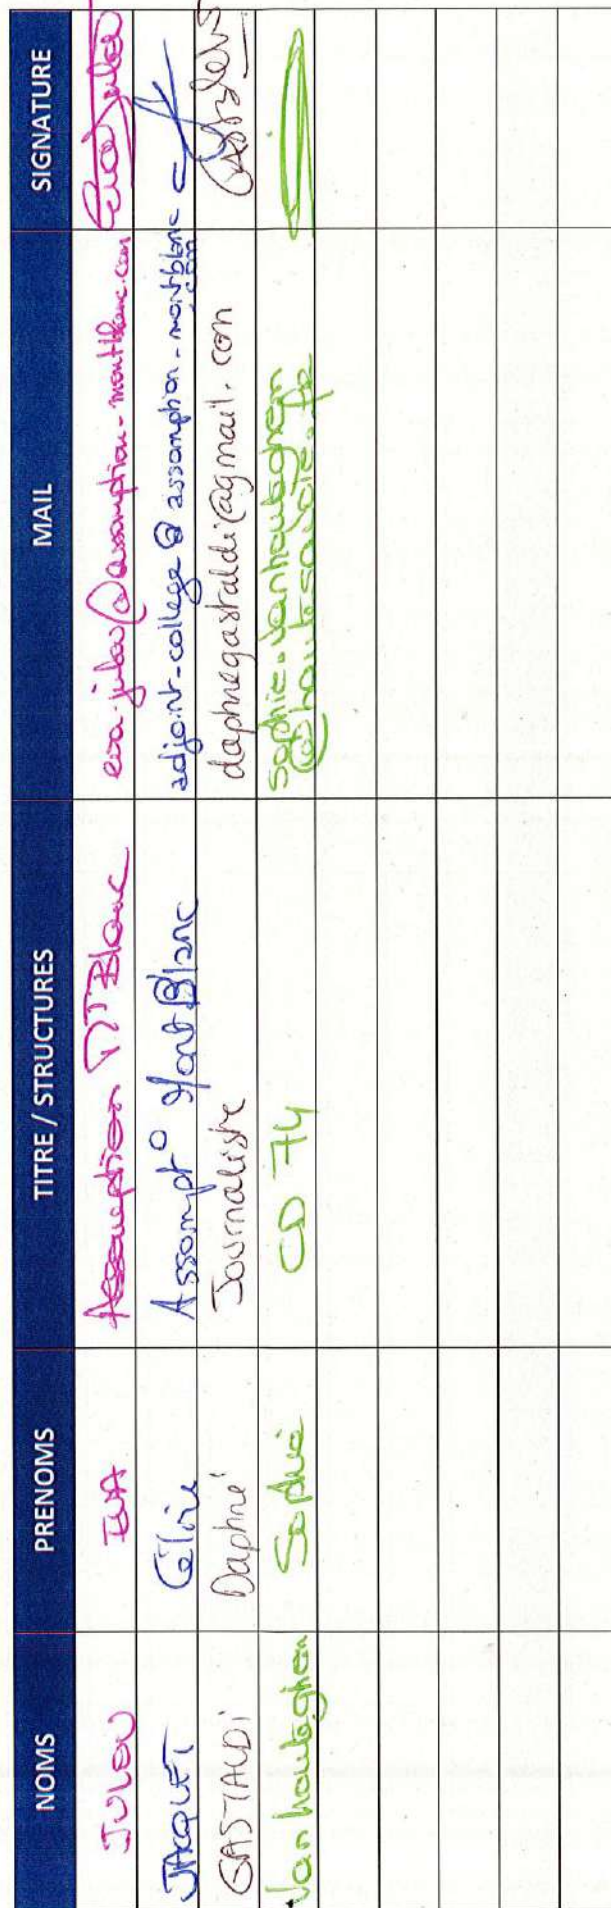 NOMS PRENOMS TITRE / STRUCTURES MAIL SIGNATURE
JULOU EVA Assomption Mt Blanc eva.julou@assomption-montblanc.com
JACQUET Céline Assompt° Mont Blanc adjoint-college@assomption-montblanc.com
GASTALDI Daphné Journaliste daphnegastaldi@gmail.com GASTALDI
Vanhouteghem Sophie CD 74 sophie.vanhouteghem
@hautesavoie.fr